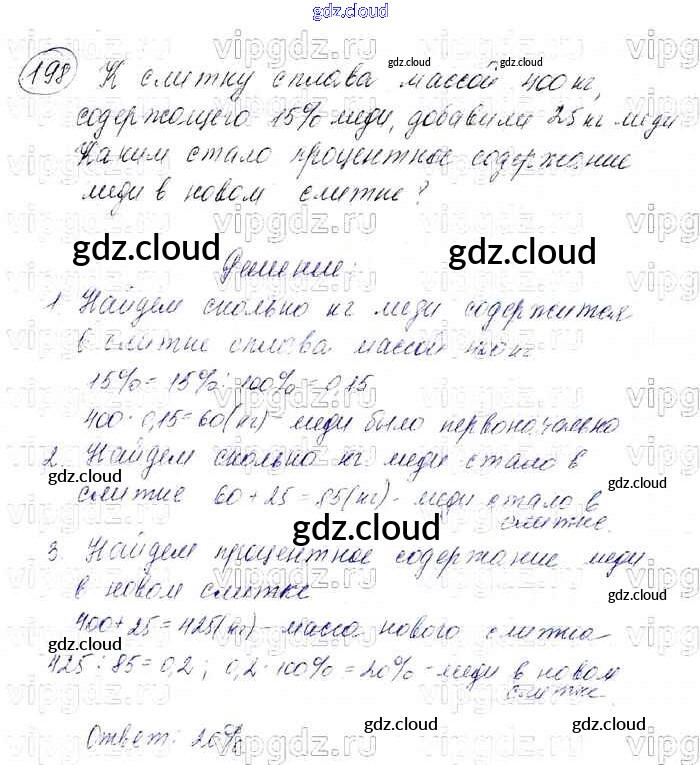 gdz.cloud
198 К слитку сплава массой 400 кг,
содержащего 15% меди, добавили 25 кг меди
Каким стало процентное содержание
меди в новом слитке?
gdz.cloud gdz.cloud
Решение:
1 Найдем сколько кг меди содержится
в слитке сплава массой 400 кг
15% = 15% : 100% = 0,15
400 · 0,15 = 60 (кг) - меди было первоначально
2. Найдем сколько кг меди стало в
слитке 60 + 25 = 85 (кг) - меди стало в
слитке.
gdz.cloud
3 Найдем процентное содержание меди
в новом слитке
400 + 25 = 425 (кг) - масса нового слитка
425 : 85 = 0,2 ; 0,2 · 100% = 20% - меди в новом
слитке.
Ответ: 20%
gdz.cloud gdz.cloud